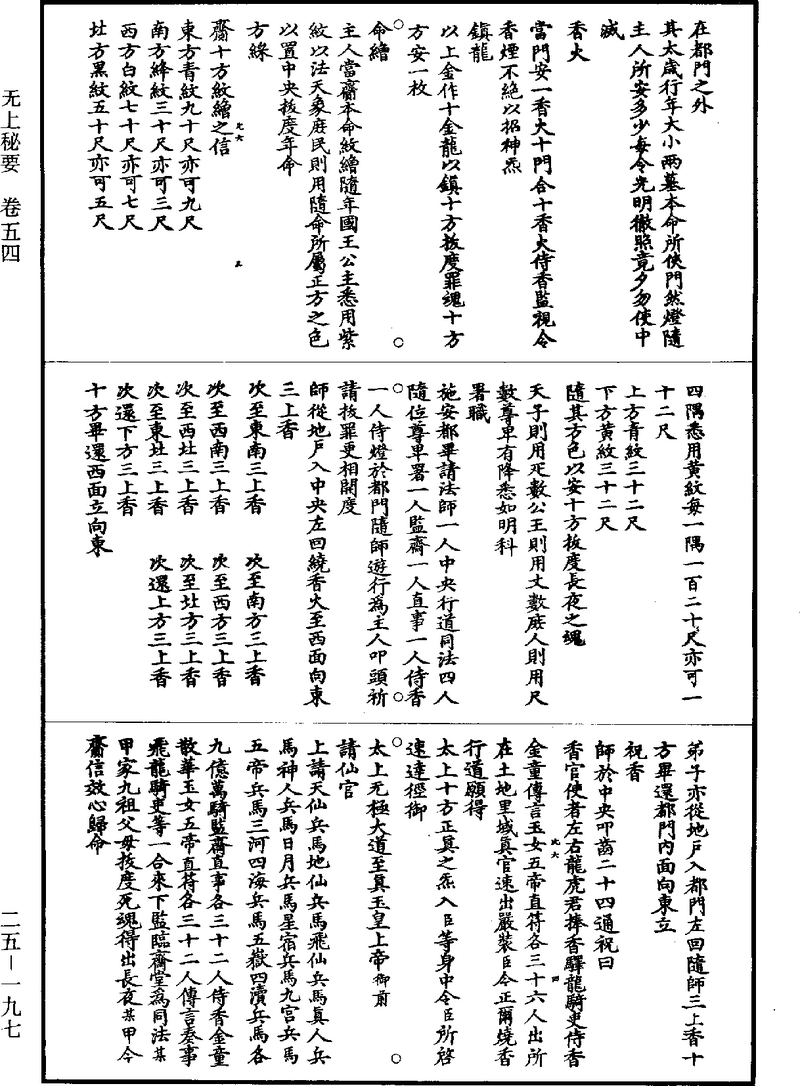 无上秘要　卷五四
在都門之外
其太歲行年大小兩墓本命所使門然燈隨
主人所安多少每令光明徹照竟夕勿使中
滅
香火
當門安一香火十門合十香火侍香監視令
香煙不絕以招神炁
鎮龍
以上金作十金龍以鎮十方拔度罪魂十方
方安一枚
命繒
主人當齋本命紋繒隨年國王公主悉用紫
紋以法天象庶民則用隨命所屬正方之色
以置中央拔度年命
方綵
齋十方紋繒之信
東方青紋九十尺亦可九尺
南方絳紋三十尺亦可三尺
西方白紋七十尺亦可七尺
北方黑紋五十尺亦可五尺
四隅悉用黃紋每一隅一百二十尺亦可一
十二尺
上方青紋三十二尺
下方黃紋三十二尺
隨其方色以安十方拔度長夜之魂
天子則用疋數公王則用丈數庶人則用尺
數尊卑有降悉如明科
署職
施安都畢請法師一人中央行道同法四人
隨位尊卑署一人監齋一人直事一人侍香
一人侍燈於都門隨師遊行為主人叩頭祈
請拔罪更相開度
師從地戶入中央左回繞香火至西面向東
三上香
次至東南三上香　次至南方三上香
次至西南三上香　次至西方三上香
次至西北三上香　次至北方三上香
次至東北三上香　次還上方三上香
次還下方三上香
十方畢還西面立向東
弟子亦從地戶入都門左回隨師三上香十
方畢還都門內面向東立
祝香
師於中央叩齒二十四通祝曰
香官使者左右龍虎君捧香驛龍騎吏侍香
金童傳言玉女五帝直符各三十六人出所
在土地里域真官速出嚴裝臣今正爾燒香
行道願得
太上十方正真之炁入臣等身中令臣所啓
速達徑御
太上无極大道至真玉皇上帝御前
請仙官
上請天仙兵馬地仙兵馬飛仙兵馬真人兵
馬神人兵馬日月兵馬星宿兵馬九宮兵馬
五帝兵馬三河四海兵馬五嶽四瀆兵馬各
九億萬騎監齋直事各三十二人侍香金童
散華玉女五帝直符各三十二人傳言奏事
飛龍騎吏等一合來下監臨齋堂為同法某
甲家九祖父母拔度死魂得出長夜某甲今
齋信效心歸命
二五—一九七